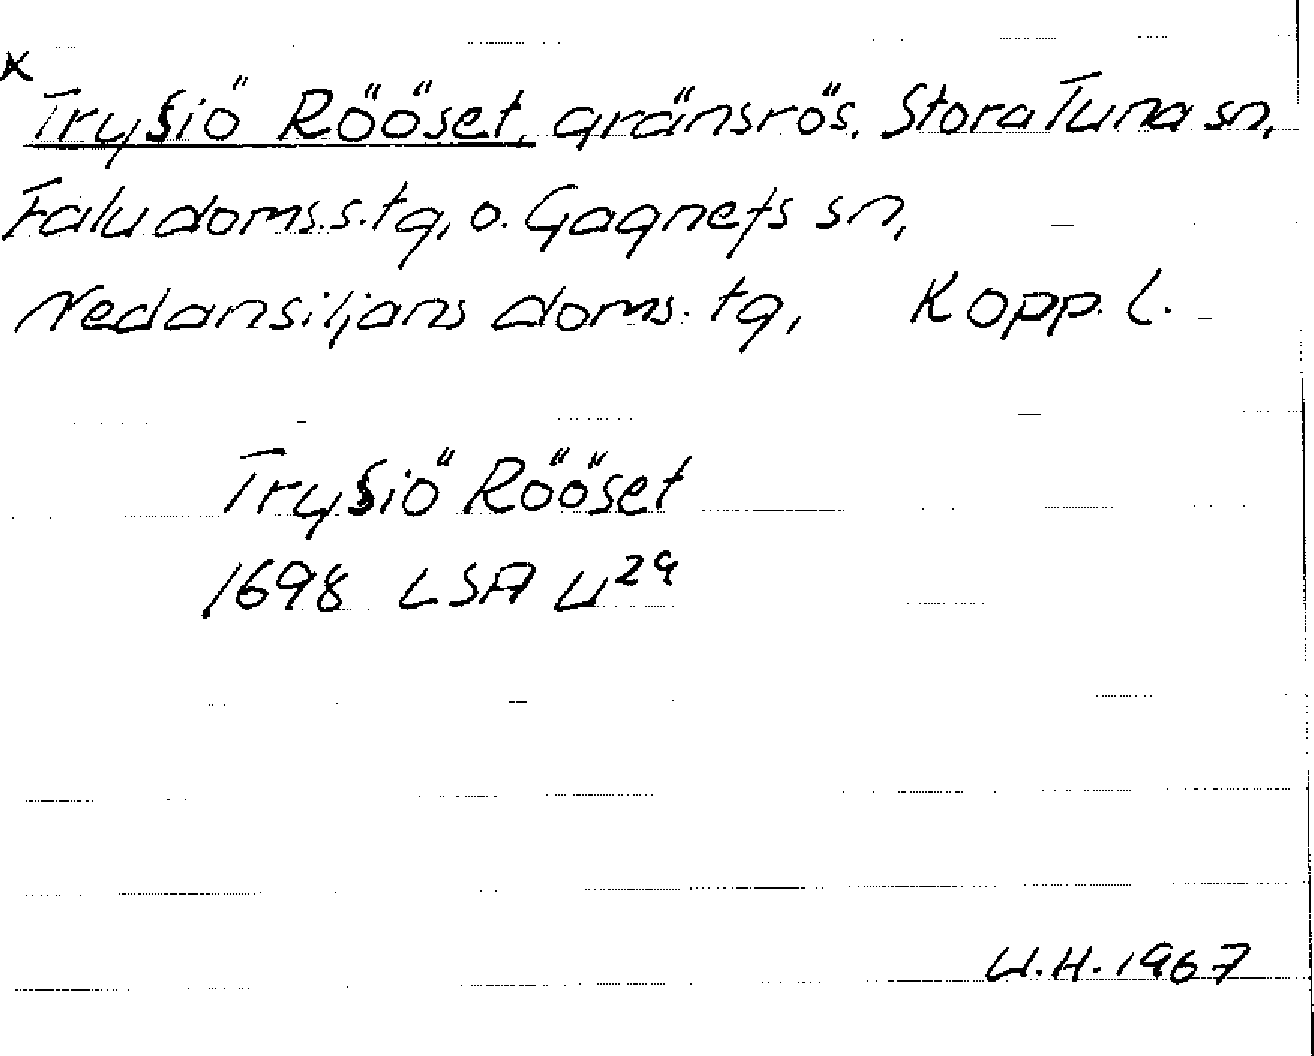 x
Tryßiö Rööset, gränsrös. Stora Tuna sn,
Falu doms.s.tg, o. Gagnefs sn,
Nedansiljans doms. tg, Kopp. l.
Tryßiö Rööset
1698 LSA U²⁹
U.H. 1967